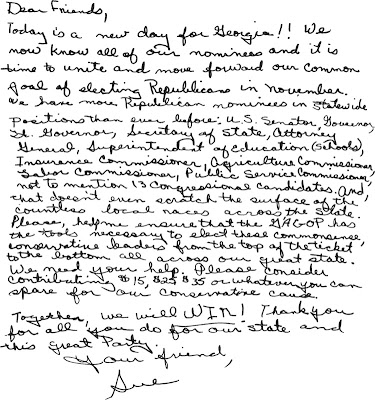 Dear Friends,
Today is a new day for Georgia!! We
now know all of our nominees and it is
time to unite and move forward our common
goal of electing Republicans in November.
We have more Republican nominees in statewide
positions than ever before: U.S. Senator, Governor,
Lt. Governor, Secretary of State, Attorney
General, Superintendent of Education (Schools),
Insurance Commissioner, Agriculture Commissioner,
Labor Commissioner, Public Service Commissioner,
not to mention 13 Congressional candidates. And,
that doesn't even scratch the surface of the
countless local races across the state.
Please, help me ensure that the GAGOP has
the tools necessary to elect these commonsense,
conservative leaders from the top of the ticket
to the bottom all across our great state.
We need your help. Please consider
contributing $15, $25 $35 or whatever you can
spare for our conservative cause.
Together, we will WIN! Thank you
for all you do for our state and
this great Party.
Your friend,
Sue